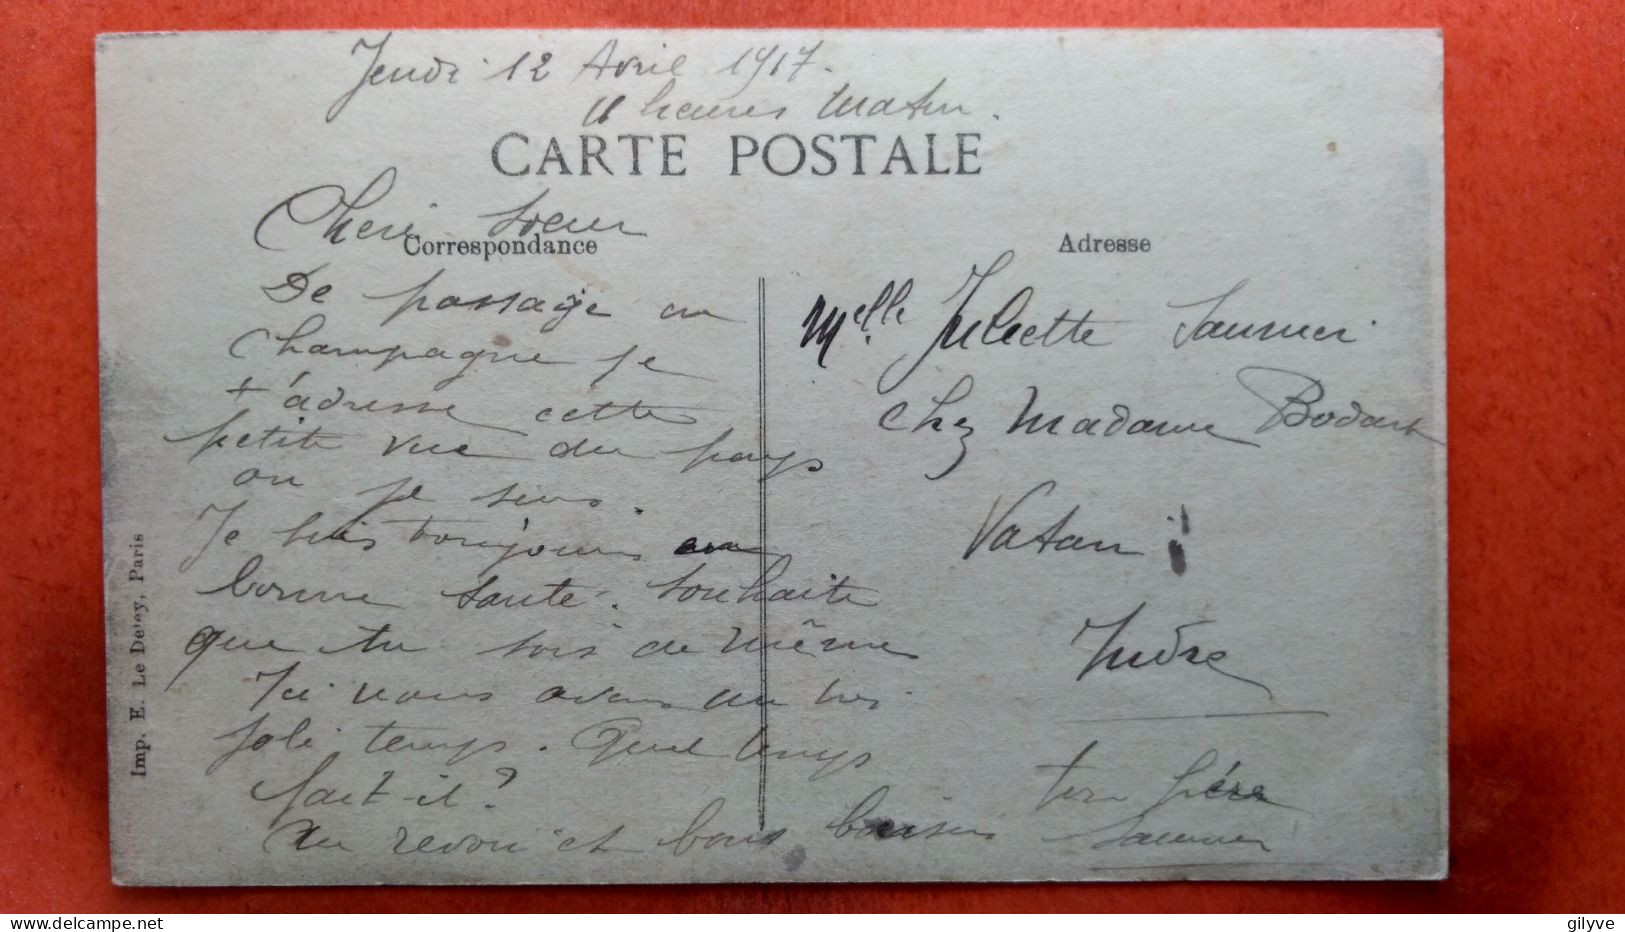 Jeudi 12 Avril 1917.
11 heures Matin.
CARTE POSTALE
Cheri Soeur
Correspondance
De passage en
Champagne je
t'adresse cette
petite vue du pays
ou je suis.
Je suis toujours en
bonne santé. Souhaite
que tu sois de même
Ici nous avons un tres
joli temps. Quel temps
fait-il?
Au revoir et bons baisers
ton frére
Saumer
Adresse
Melle Juliette
Chez Madame Bodart
Vatan
Indre
Imp. E. Le Deley, Paris
gilyve